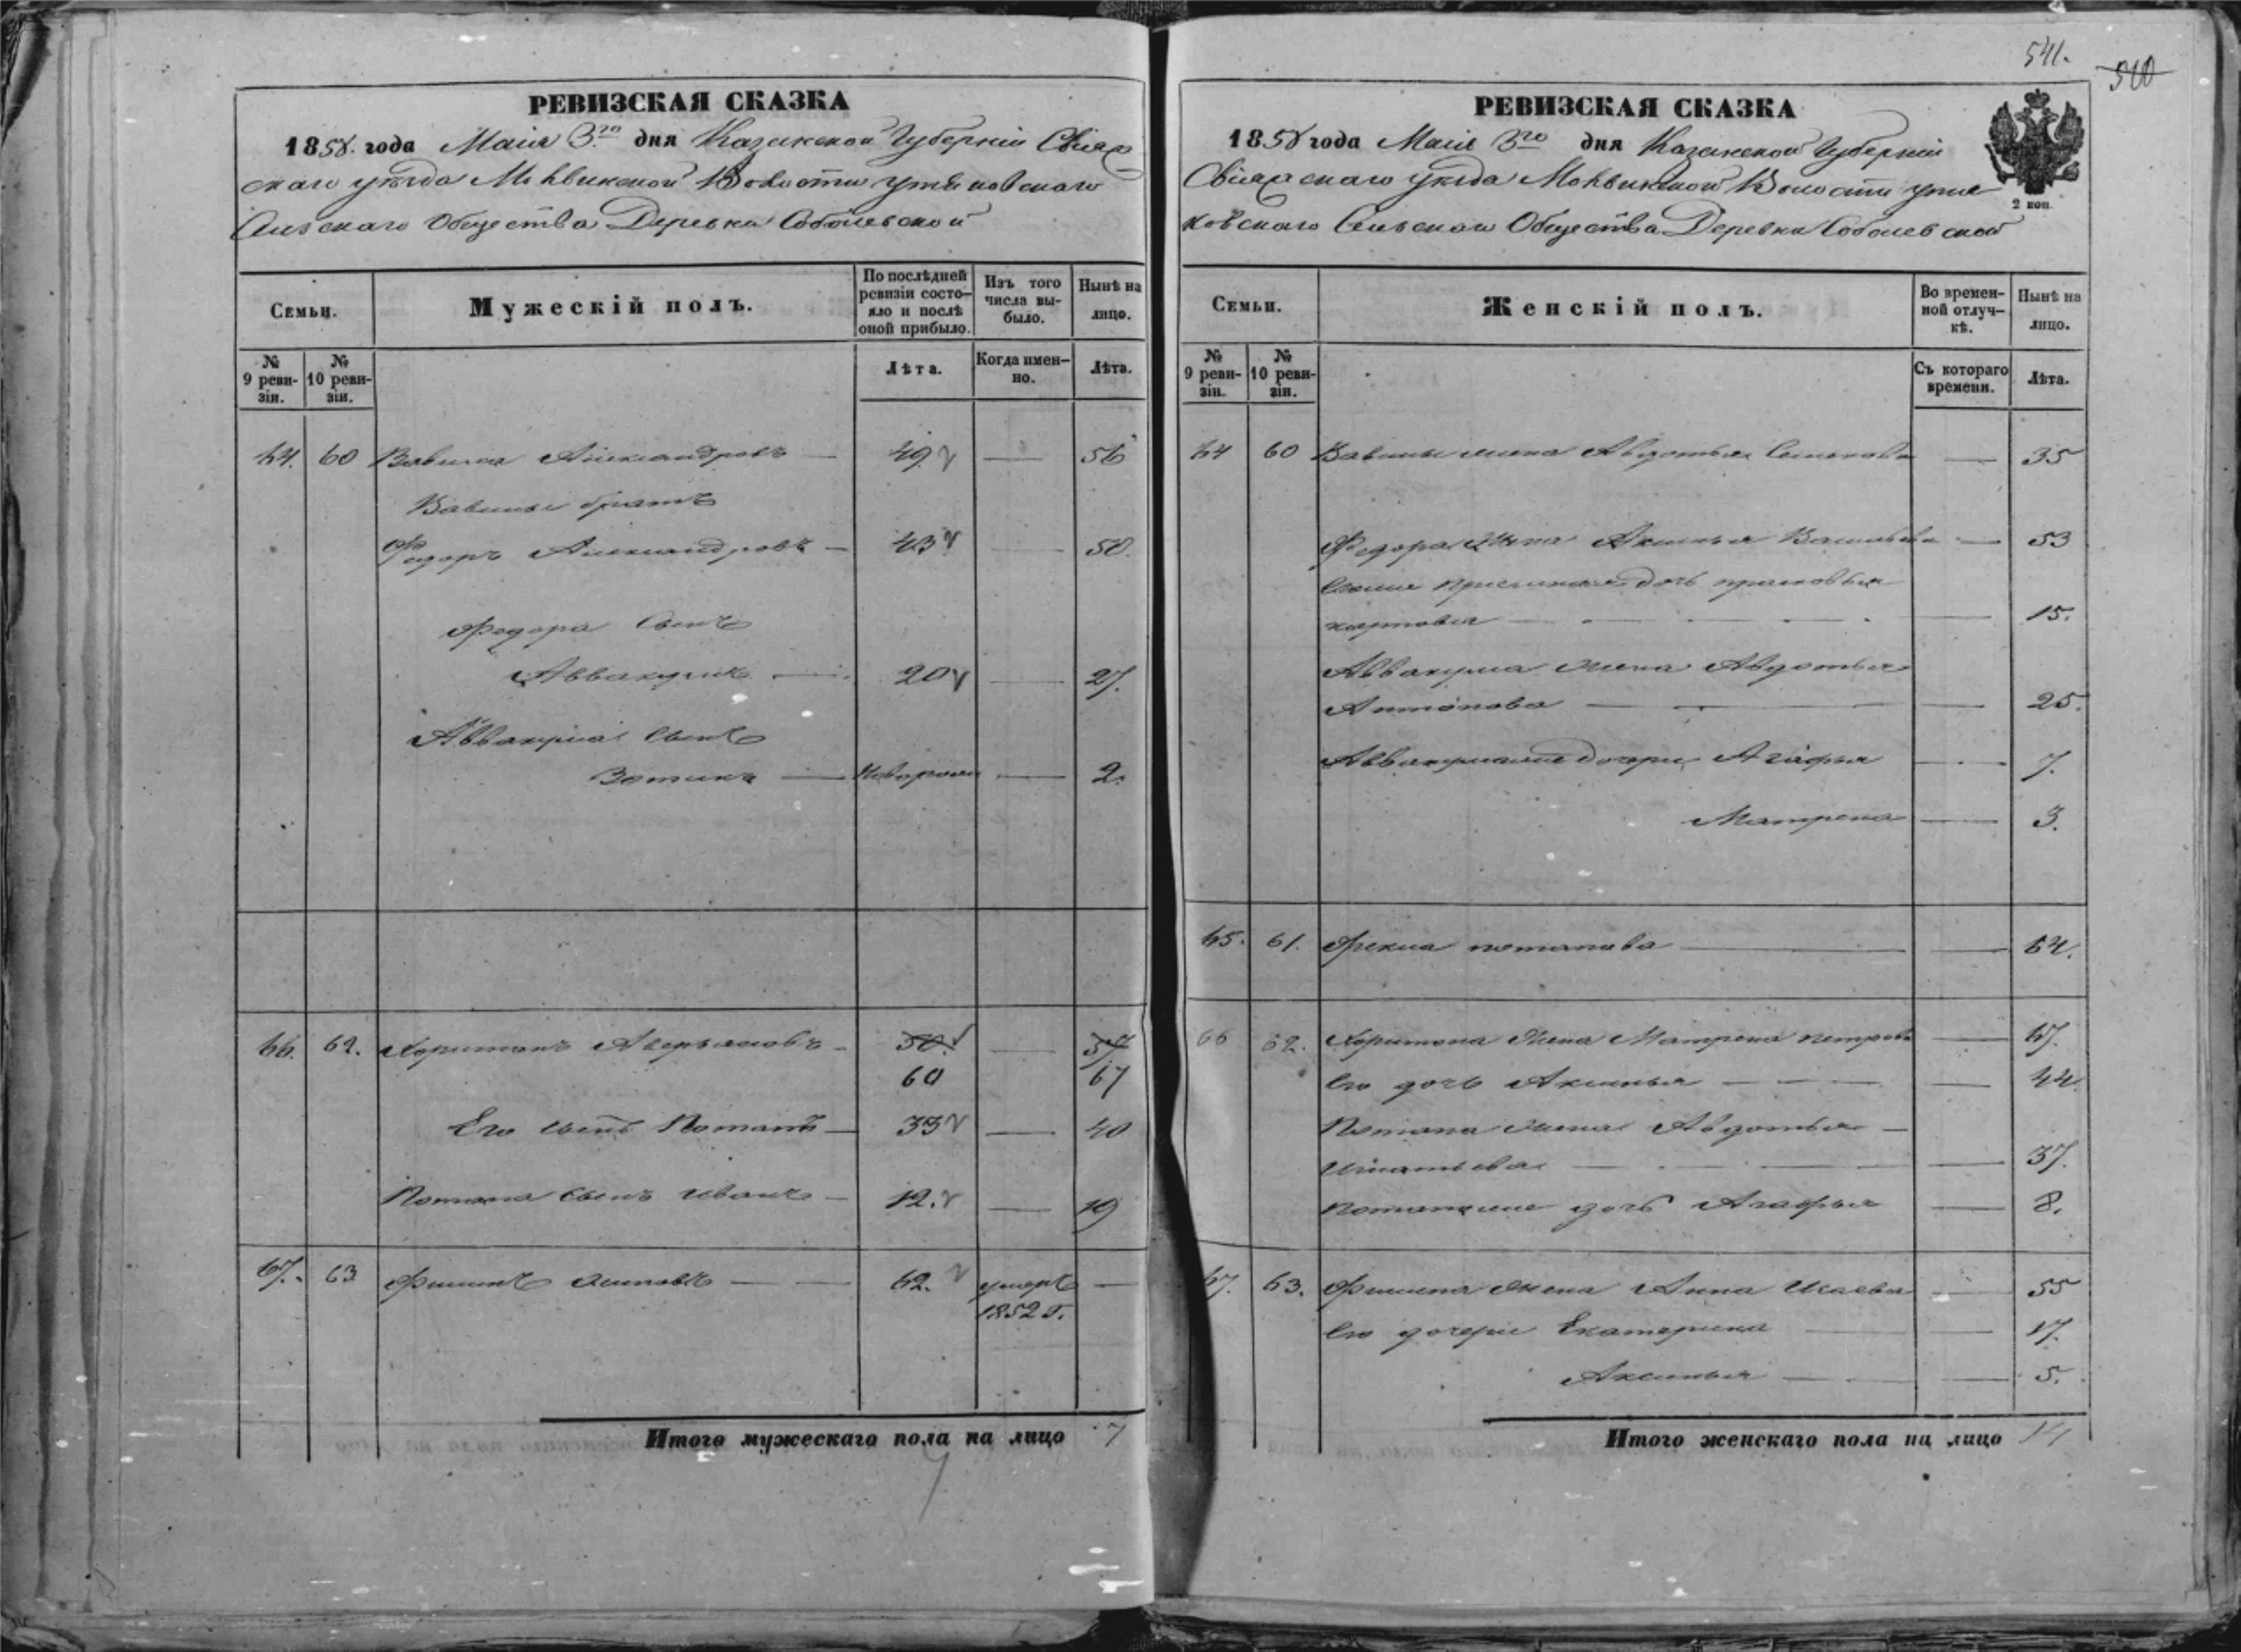 РЕВИЗСКАЯ СКАЗКА
1858. года Маія 3го дня Казанской Губерніи Свіяж
скаго уѣзда Волости утяковскаго
Сельскаго Общества Деревни Соболевской
Семьи.
Мужескій полъ.
По послѣдней ревизіи состояло и послѣ оной прибыло.
Изъ того числа выбыло.
Нынѣ на лицо.
№ 9 ревизіи.
№ 10 ревизіи.
Лѣта.
Когда именно.
Лѣта.
64. 60 Вавила Александровъ — 49. — 56
Вавилы братъ
Федоръ Александровъ — 43 — 50.
Федора Сынъ
Аввакумъ — 20 — 27.
Аввакума Сынъ
Зотикъ — Новорожд — 2.
66. 62. Харитонъ Аверьяновъ — 50. — 57
60 67
Его сынъ Потапъ — 33 — 40
Потапа Сынъ Иванъ — 12. — 19
67. 63 Филипъ Осиповъ — 62. умеръ —
1852 г.
Итого мужескаго пола на лицо 7
541.
540
РЕВИЗСКАЯ СКАЗКА
1858 года Маія 3го дня Казанской Губерніи
Свіяжскаго уѣзда Волости утя
ковскаго Сельскаго Общества Деревни Соболевской
2 коп.
Семьи.
Женскій полъ.
Во временной отлучкѣ.
Нынѣ на лицо.
№ 9 ревизіи.
№ 10 ревизіи.
Съ котораго времени.
Лѣта.
64 60 Вавилы жена Авдотья Семенова — 35
Федора Жена Аксинья Васильева — 53
дочь прасковья
карпова — 15.
Аввакума Жена Авдотья
Антонова — 25.
Аввакумовы дочери Агафья — 7.
Матрена — 3.
65. 61. Фекла потапова — 64.
66 62. Харитона Жена Матрена петрова — 67.
Его дочь Аксинья — 44
Потапа Жена Авдотья —
Игнатьева — 37.
дочь Агафья — 8.
67. 63. Филипа Жена Анна Исаева — 55
Его дочери Екатерина — 17.
Аксинья — 5.
Итого женскаго пола на лицо 14